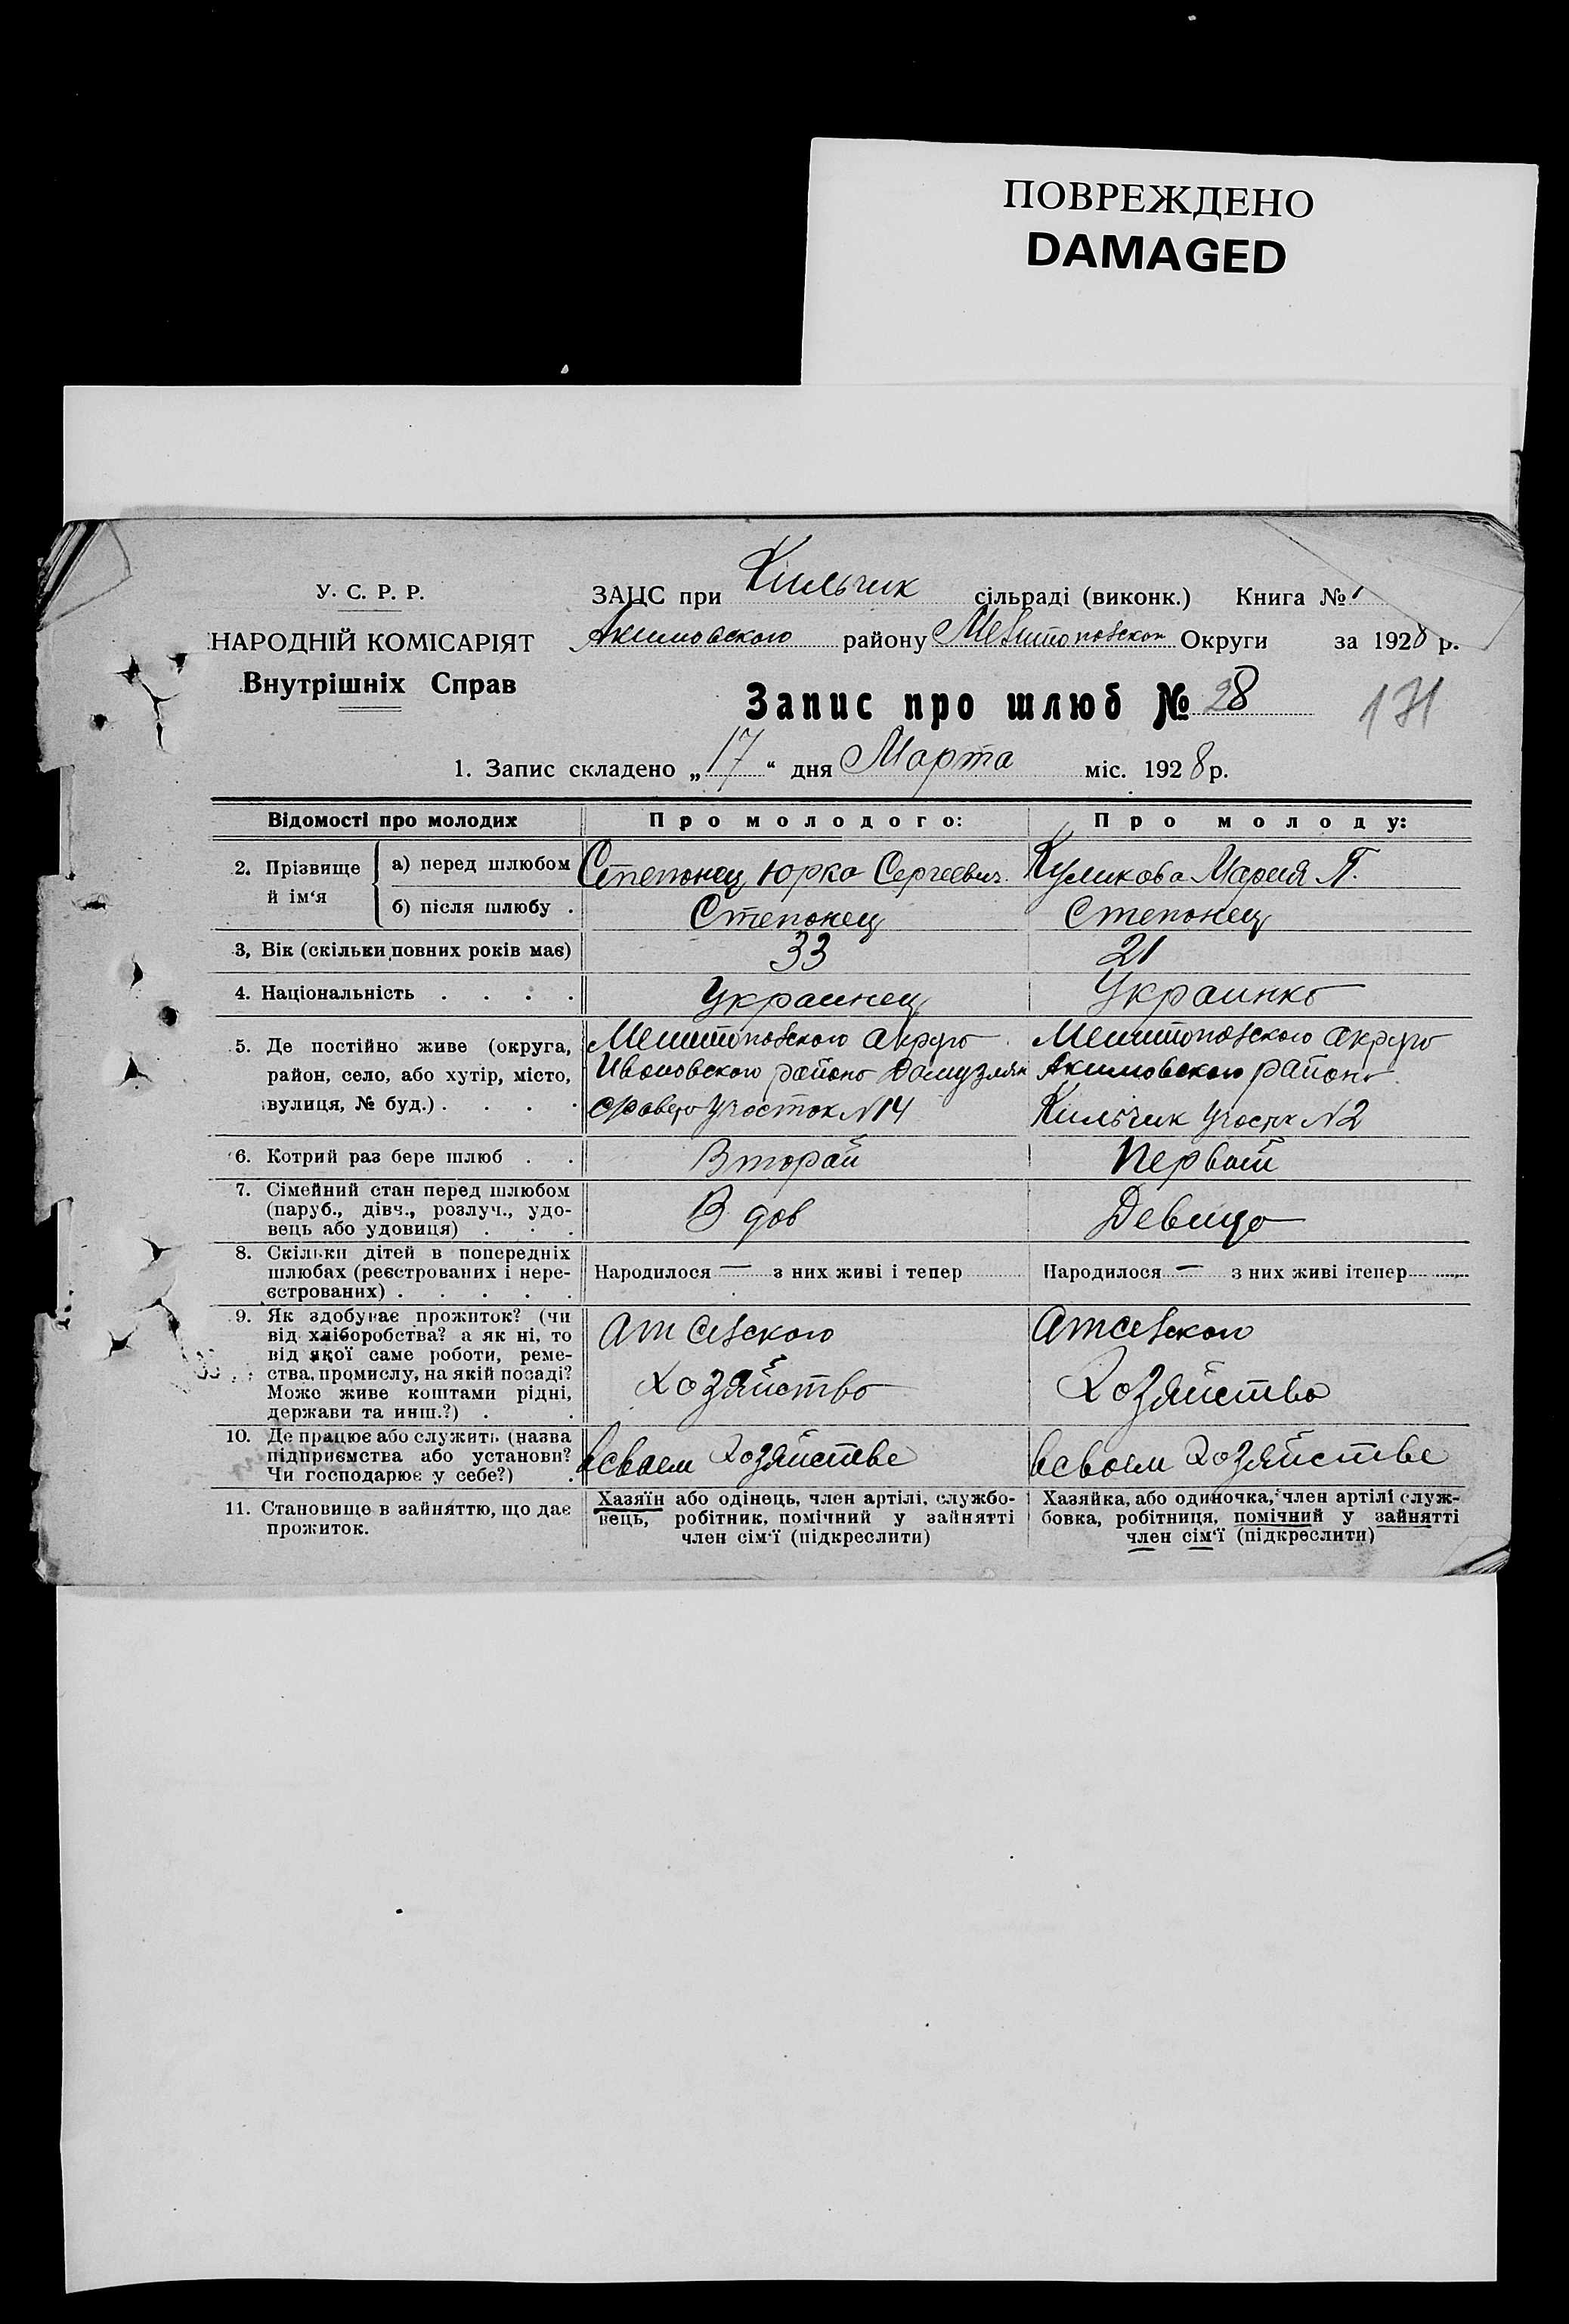 ПОВРЕЖДЕНО
DAMAGED
У. С. Р. Р.
НАРОДНІЙ КОМІСАРІЯТ
Внутрішніх Справ
ЗАЦС при Кильчик сільраді (виконк.) Книга № 1
Акимовского району Мелитополскоп Округи за 1928 р.
Запис про шлюб № 28
171
1. Запис складено „17“ дня Марта міс. 1928 р.
Відомості про молодих
Про молодого:
Про молоду:
2. Прізвище й ім‘я
а) перед шлюбом
Степонец Юрко Сергеевич
Куликова Мария П.
б) після шлюбу .
Степонец
Степонец
3. Вік (скільки повних років має)
33
21
4. Національність . . . .
Украинец
Украинка
5. Де постійно живе (округа,
район, село, або хутір, місто,
вулиця, № буд.) . . . .
Мелитополского акруго
района
Участок N 14
Мелитополского акруго
Акимовского района
Кильчик N 2
6. Котрий раз бере шлюб . .
Второй
Первой
7. Сімейний стан перед шлюбом
(паруб., дівч., розлуч., удо-
вець або удовиця) . . .
Вдов
Девица
8. Скільки дітей в попередніх
шлюбах (реєстрованих і нере-
єстрованих) . . . . .
Народилося — з них живі і тепер
Народилося — з них живі ітепер
9. Як здобуває прожиток? (чи
від хліборобства? а як ні, то
від якої саме роботи, реме-
ства, промислу, на якій посаді?
Може живе коштами рідні,
держави та инш.?) . .
Ат Селского
Хозяйство
Ат Селского
Хозяйства
10. Де працює або служить (назва
підприємства або установи?
Чи господарює у себе?) .
всваем Хозяйстве
всвоем Хозяйстве
11. Становище в зайняттю, що дає
прожиток.
Хазяїн або одінець, член артілі, службо-
вець, робітник, помічний у зайнятті
член сім‘ї (підкреслити)
Хазяйка, або одиночка, член артілі служ-
бовка, робітниця, помічний у зайнятті
член сім‘ї (підкреслити)